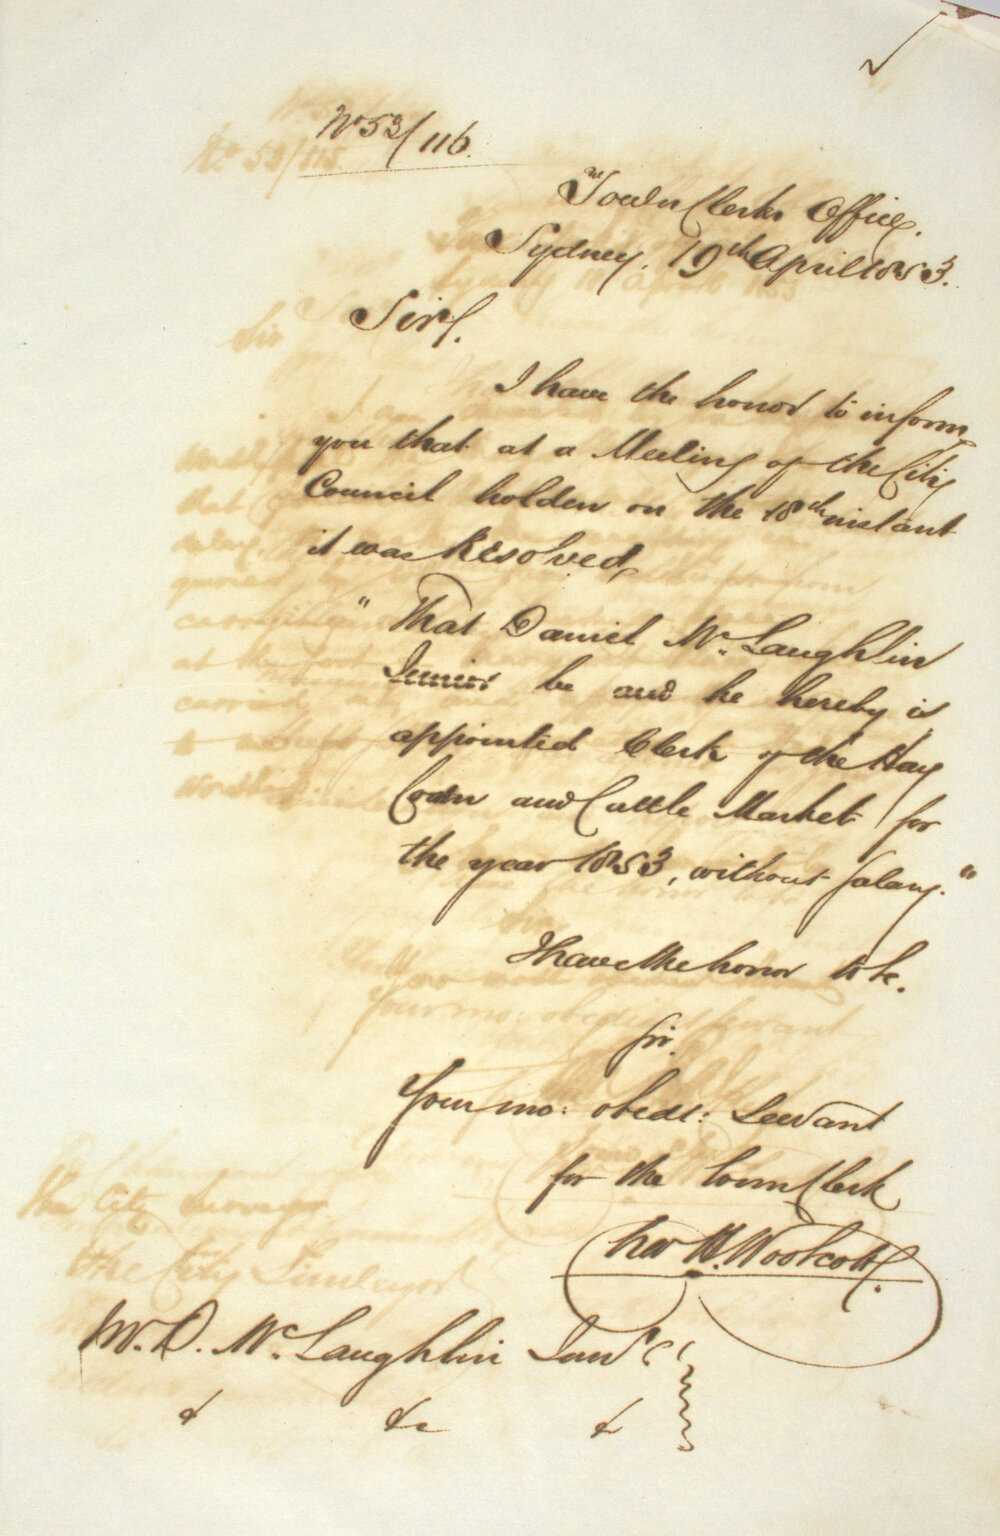 No 53/116.
Town Clerks Office,
Sydney, 19th April 1853.
Sir,
I have the honor to inform
you that at a Meeting of the City
Council holden on the 18th instant
it was Resolved,
"That Daniel Mc Laughlin
Junior be and he hereby is
appointed Clerk of the Hay
Corn and Cattle Market for
the year 1853, without salary."
I have the honor to be.
Sir.
Your mo: obedt: Servant
for the Town Clerk
Chas H. Woolcott.
Mr. D. Mc Laughlin Junr
& &c &